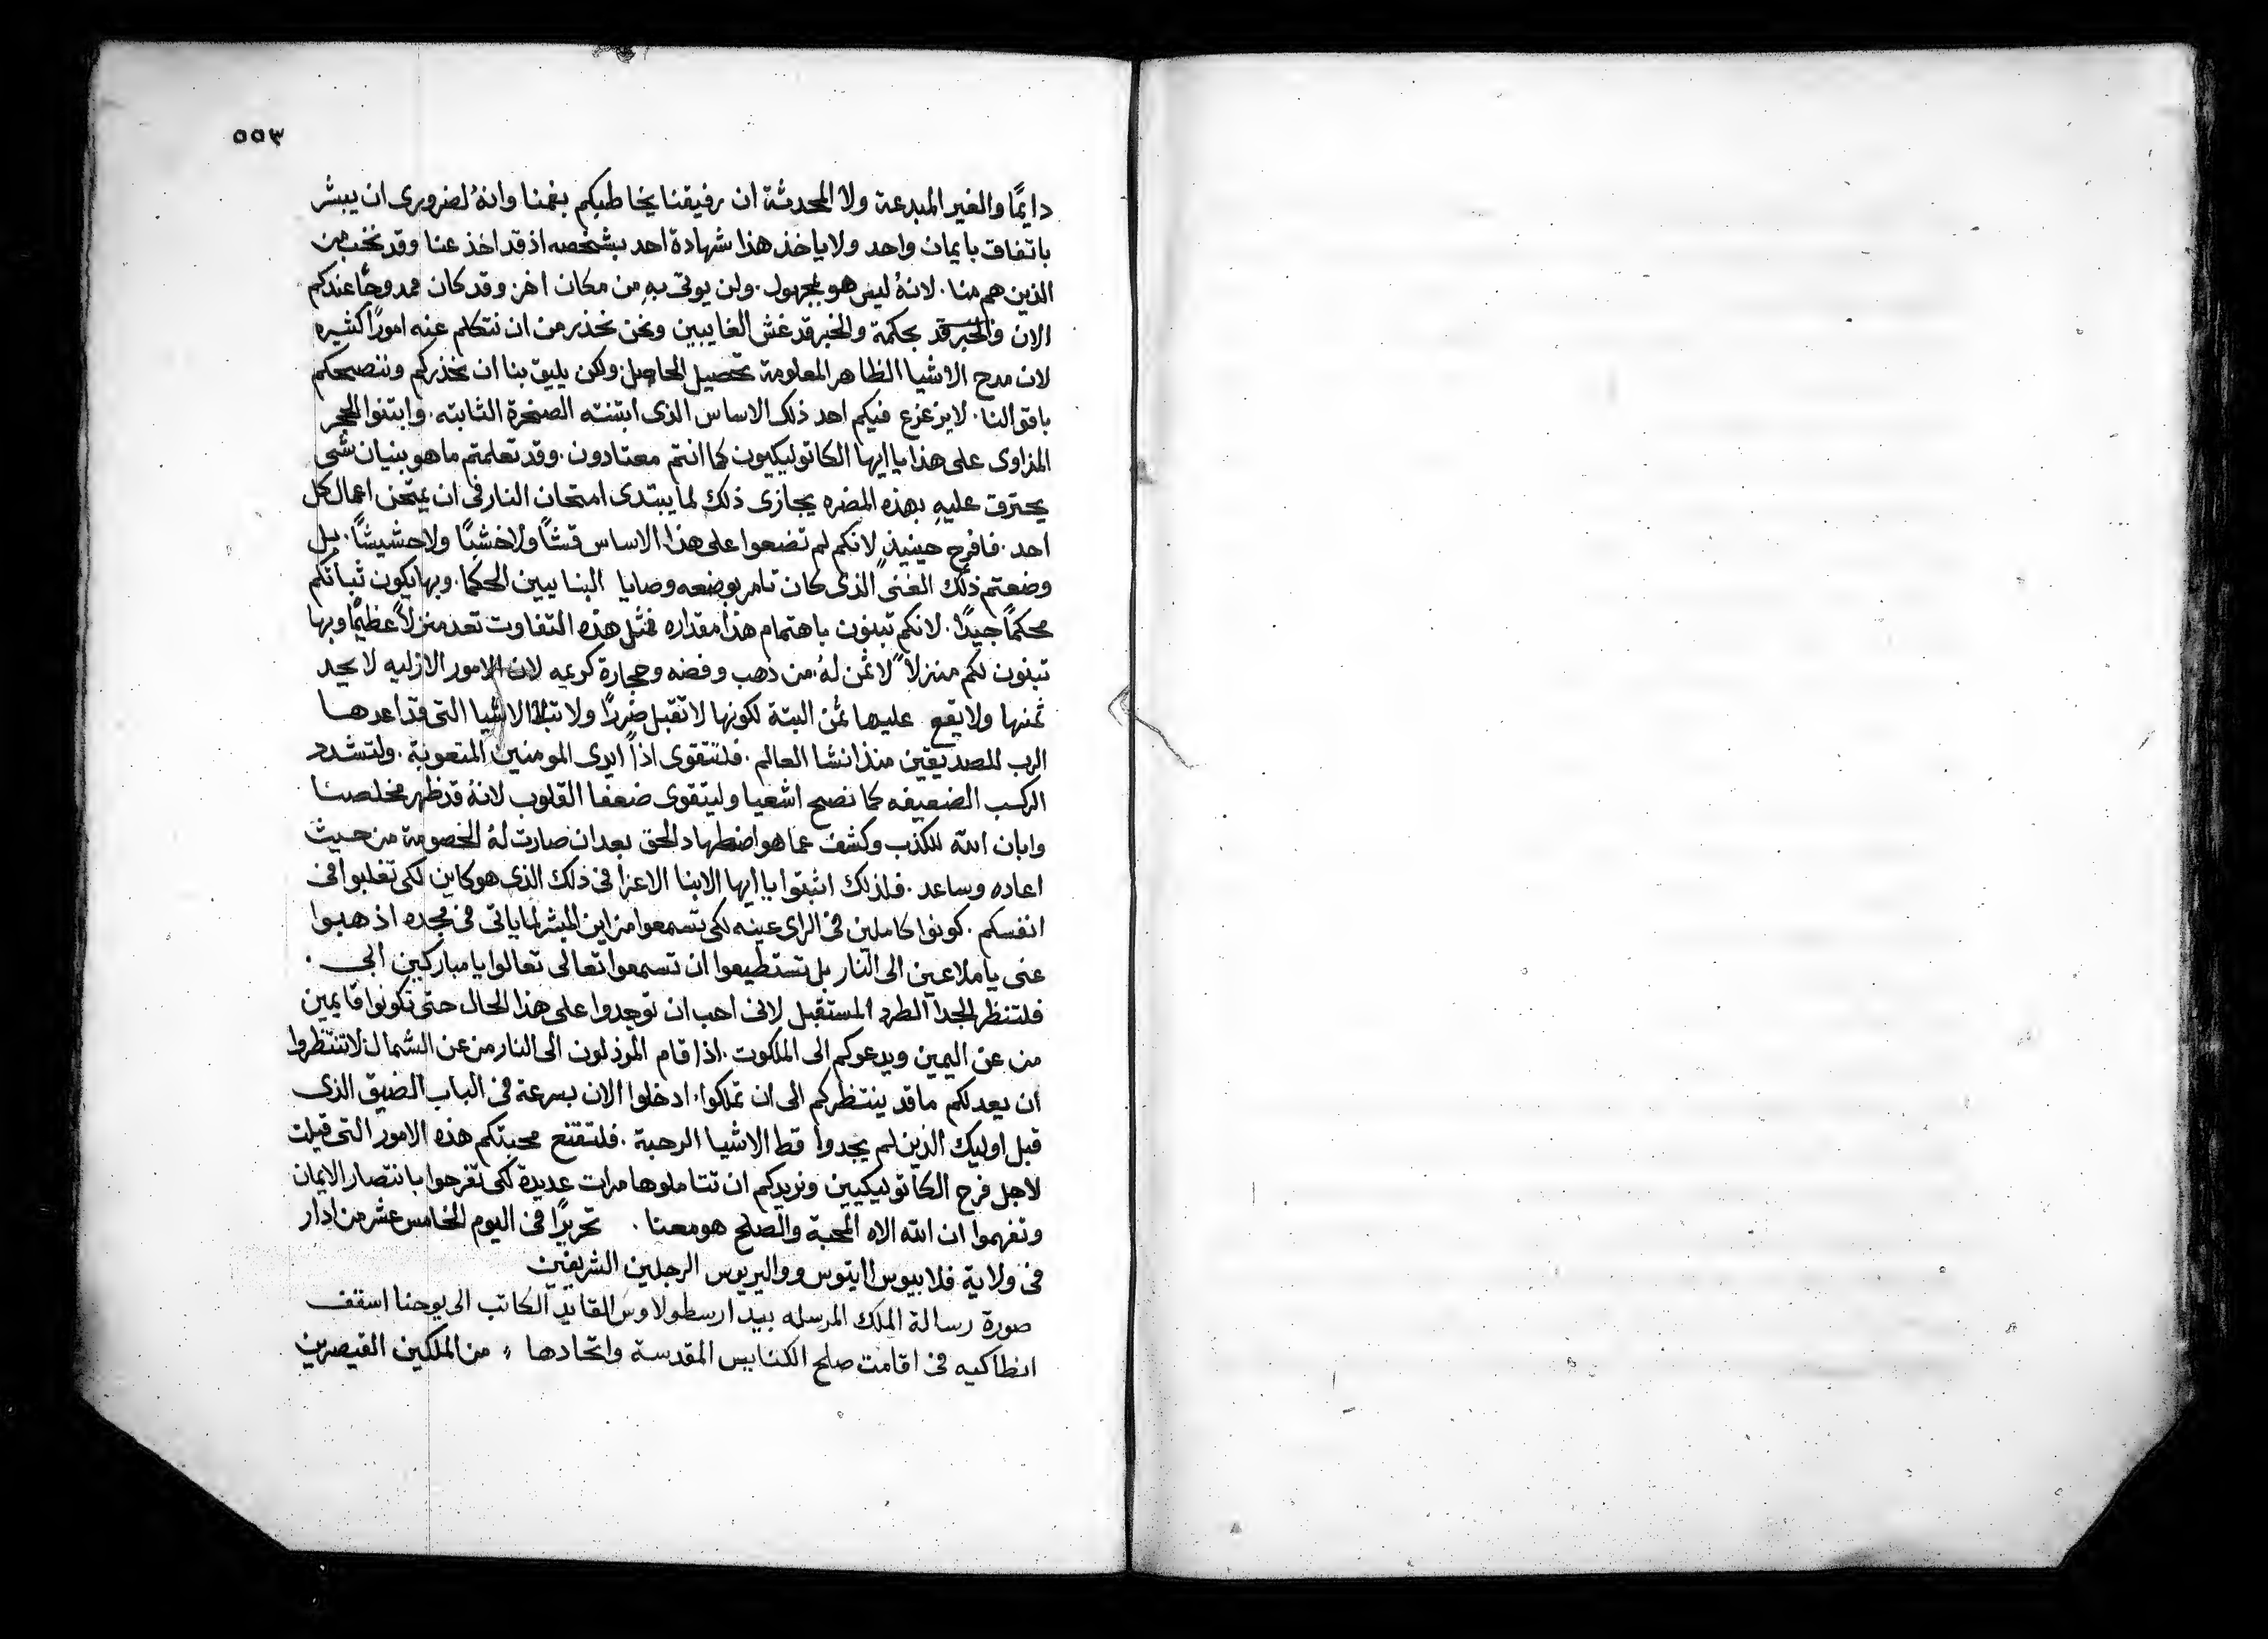 ٥٥٣
دايمًا والغير المبدعة ولا المحدثة ان رفيقنا يخاطبكم بفمنا وانهُ لضرورى ان يبشر
باتفاق بايمان واحد ولا ياخذ هذا شهادة احد بشخصه اذ قد اخذ عنا وقد نخب من
الذين هم منا. لانهُ ليس هو بمجهول. ولن يوتى بهِ من مكان اخر وقد كان ممدوحًا عندكم
الان والخبر قد بحكمة والخبر قد غش الغايبين ونحن نحذر من ان نتكلم عنه امورًا كثيره
لان مدح الاشيا الظاهر المعلومة تحصيل الحاصل. ولكن يليق بنا ان نحذركم وننصحكم
باقوالنا. لا يزعزع فيكم احد ذلك الاساس الذى ابتنته الصخرة الثابته. وابتنوا الحجر
المزاوى على هذا يا ايها الكاتوليكيون كما انتم معتادون. وقد تعلمتم ما هو بنيان شى
يحترق عليهِ بهذه المضره يجازى ذلك لما يبتدى امتحان النار فى ان يمتحن اعمال كل
احد. فافرح حينيذٍ لانكم لم تضعوا على هذا الاساس قشًا ولا خشبًا ولا حشيشًا. بل
وضعتم ذلك الغنى الذى كان تامر بوضعه وصايا البنايين الحكما. وبها يكون ثباتكم
محكمًا جيدًا. لانكم تبنون باهتمام هذا مقداره فمثل هذه التفاوت تعد منزلاً عظيمًا وبها
تبنون لكم منزلاً لا ثمن لهُ. من ذهب وفضه وحجارة كريمه لان الامور الازليه لا يحد
ثمنها ولا يقع عليها ثمن البتة لكونها لا تقبل ضررًا ولا الاشيا التى قد اعدها
الرب للصديقين منذ انشا العالم. فلتتقوى اذاً ايدى المومنين المتعوبة. ولتشدد
الركب الضعيفه كما نصح اشعيا وليتقوى ضعفا القلوب لانهُ قد ظهر مخلصنا
وابان الله للكذب وكشف عما هو اضطهاد الحق بعد ان صارت لهُ الخصومة من حيث
اعاده وساعد. فلذلك اثبتوا يا ايها الابنا الاعزا فى ذلك الذى هو كاين لكى تغلبوا فى
انفسكم. كونوا كاملين فى الراى عينه لكى تسمعوا من ابن البشر لما ياتى فى مجده اذهبوا
عنى يا ملاعين الى النار بل تستطيعوا ان تسمعوا تعالى تعالوا يا مباركين ابى.
فلتنظر الجدا الطرد المستقبل لانى احب ان توجدوا على هذا الحال حتى تكونوا قايمين
من عن اليمين ويدعوكم الى الملكوت. اذا قام المرذلون الى النار من عن الشمال لا تنتظروا
ان يعد لكم ما قد ينتظركم الى ان تملكوا. ادخلوا الان بسرعة فى الباب الضيق الذى
قبل اوليك الذين لم يجدوا قط الاشيا الرحبة. فلتقنع محبتكم هذه الامور التى قيلت
لاجل فرح الكاتوليكيين ونريدكم ان تتاملوها مرات عديدة لكى تفرحوا بانتصار الايمان
وتفهموا ان الله الاه المحبة والصلح هو معنا. تحريرًا فى اليوم الخامس عشر من ادار
فى ولاية فلابيوس اايتوس وواليريوس الرجلين الشريفين
صورة رسالة الملك المرسله بيد ارسطولاوس القايد الكاتب الى يوحنا اسقف
انطاكيه فى اقامت صلح الكنايس المقدسة واتحادها ، من الملكين القيصرين